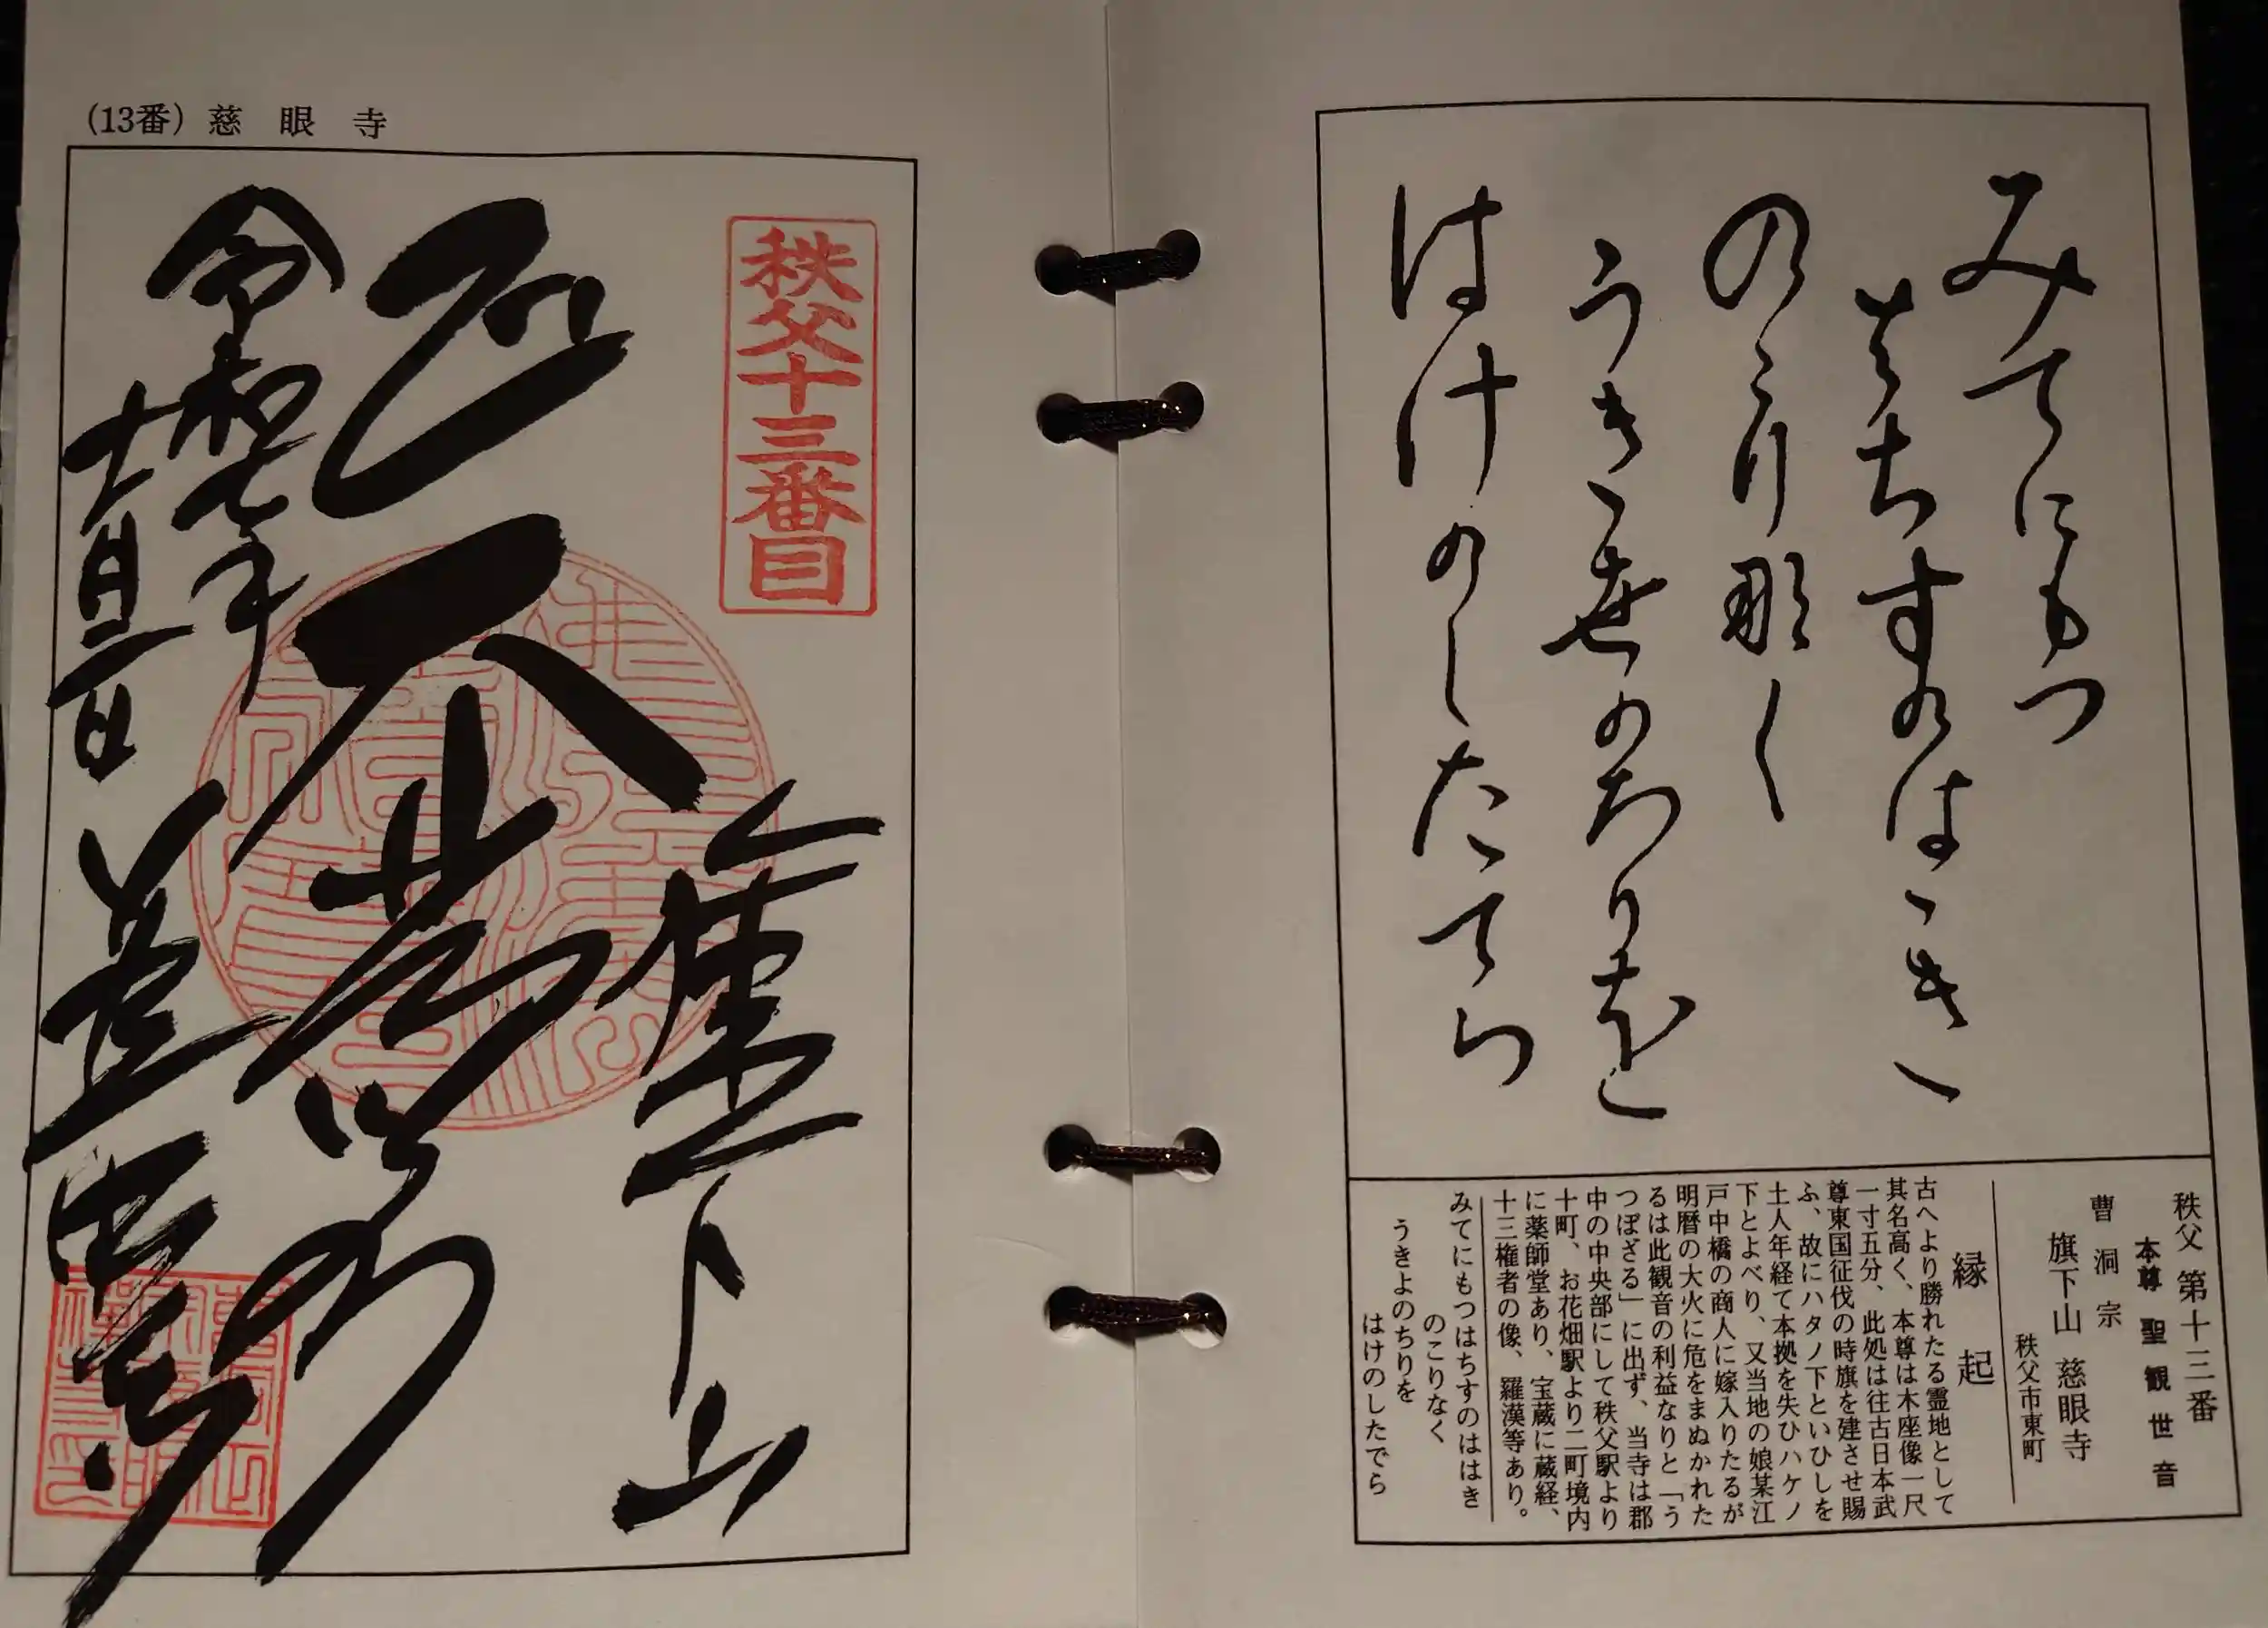 みてにもつ
はちすのはゝき
のこり那く
うきよのちりを
はけのしたてら
秩父 第十三番
本尊 聖観世音
曹洞宗
旗下山 慈眼寺
秩父市東町
縁起
古へより勝れたる霊地として
其名高く、本尊は木座像一尺
一寸五分、此処は往古日本武
尊東国征伐の時旗を建させ賜
ふ、故にハタノ下といひしを
土人年経て本拠を失ひハケノ
下とよべり、又当地の娘某江
戸中橋の商人に嫁入りたるが
明暦の大火に危をまぬかれた
るは此観音の利益なりと「う
つぽざる」に出ず、当寺は郡
中の中央部にして秩父駅より
十町、お花畑駅より二町境内
に薬師堂あり、宝蔵に蔵経、
十三権者の像、羅漢等あり。
みてにもつはちすのははき
のこりなく
うきよのちりを
はけのしたでら
(13番) 慈眼寺
秩父十三番目
旗下山
大悲
令和七年
慈眼寺